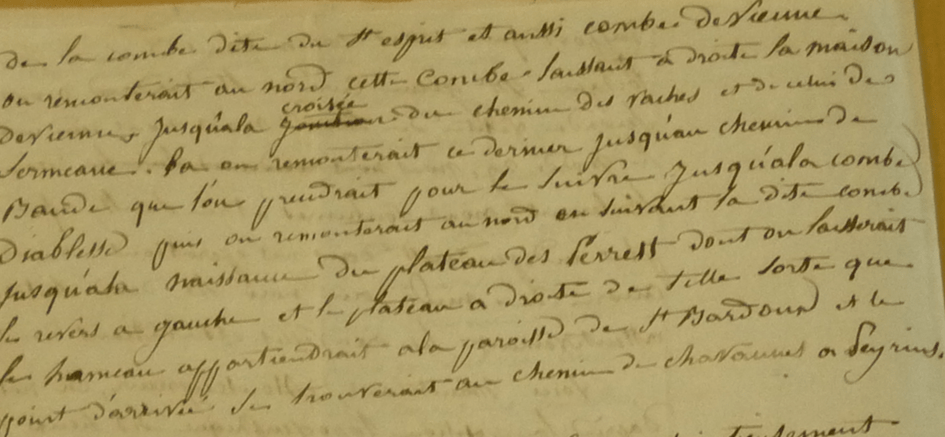 de la combe dite du St esprit et aussi combe deVienne
on remonterait au nord cette Combe laissant a droite la maison
deVienne, Jusqu'ala croisée du chemin des vaches et de celui de
Sermeane. la on remonterait ce dernier Jusqu'au chemin de
Bande que l'on prendrait pour le suivre Jusqu'ala combe
Diablesse puis on remonterait au nord en suivant la dite combe
Jusqu'ala naissance du plateau des Perrest dont on laisserait
le revers a gauche et le plateau a droite de telle sorte que
le hameau appartiendrait ala paroisse de St Bardoux et le
point d'arrivée se trouverait au chemin de chavannes a Peyrins.